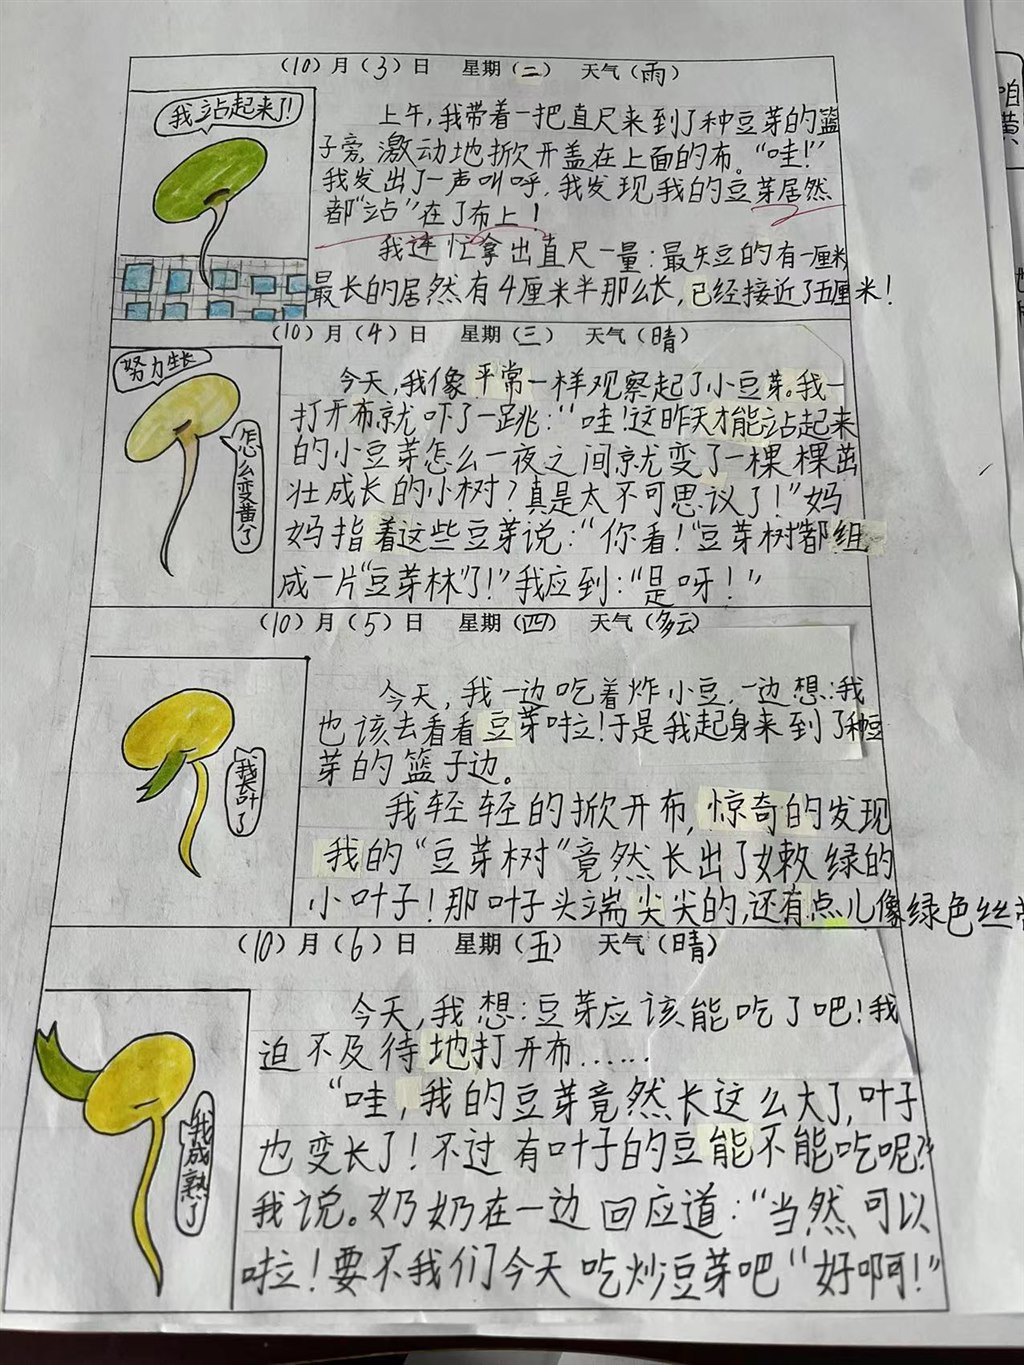 (10)月(3)日 星期(二) 天气(雨)
我站起来了!
上午,我带着一把直尺来到了种豆芽的篮
子旁,激动地掀开盖在上面的布。“哇!”
我发出了一声叫呼,我发现我的豆芽居然
都“站”在了布上!
我连忙拿出直尺一量:最矢豆的有一厘米,
最长的居然有4厘米半那么长,已经接近了五厘米!
(10)月(4)日 星期(三) 天气(晴)
努力生长
怎么变黄了
今天,我像平常一样观察起了小豆芽。我一
打开布就吓了一跳:“哇!这昨天才能站起来
的小豆芽怎么一夜之间就变了一棵棵茁
壮成长的小树?真是太不可思议了!”妈
妈指着这些豆芽说:“你看!”豆芽树都组
成一片“豆芽林”了!”我应到:“是呀!”
(10)月(5)日 星期(四) 天气(多云)
我长叶了
今天,我一边吃着炸小豆,一边想:我
也该去看看豆芽啦!于是我起身来到了种豆
芽的篮子边。
我轻轻的掀开布,惊奇的发现
我的“豆芽树”竟然长出了嫩绿的
小叶子!那叶子头端尖尖的,还有点儿像绿色丝
(10)月(6)日 星期(五) 天气(晴)
我成熟了
今天,我想:豆芽应该能吃了吧!我
迫不及待地打开布……
“哇,我的豆芽竟然长这么大了,叶子
也变长了!不过有叶子的豆能不能吃呢?”
我说。奶奶在一边回应道:“当然可以
啦!要不我们今天吃炒豆芽吧“好啊!”
咱
黄